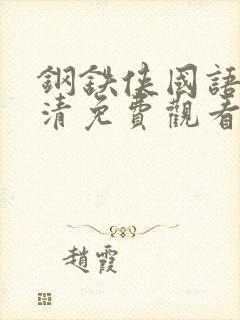 鋼鉄俠國語
清免費觀看
趙霞